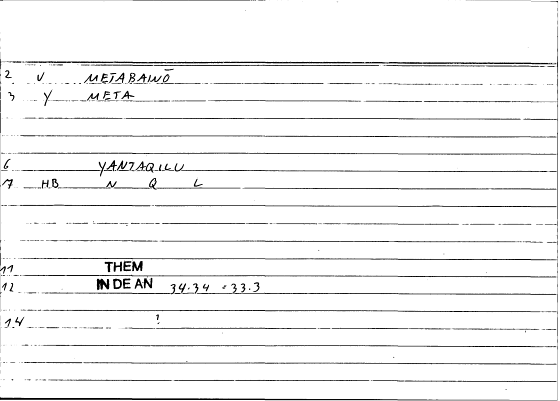 2 V METABAINŌ
3 Y META
6 YANTAQILU
17 HB N Q L
11 THEM
12 IN DE AN 34.34 = 33.3
14 ?